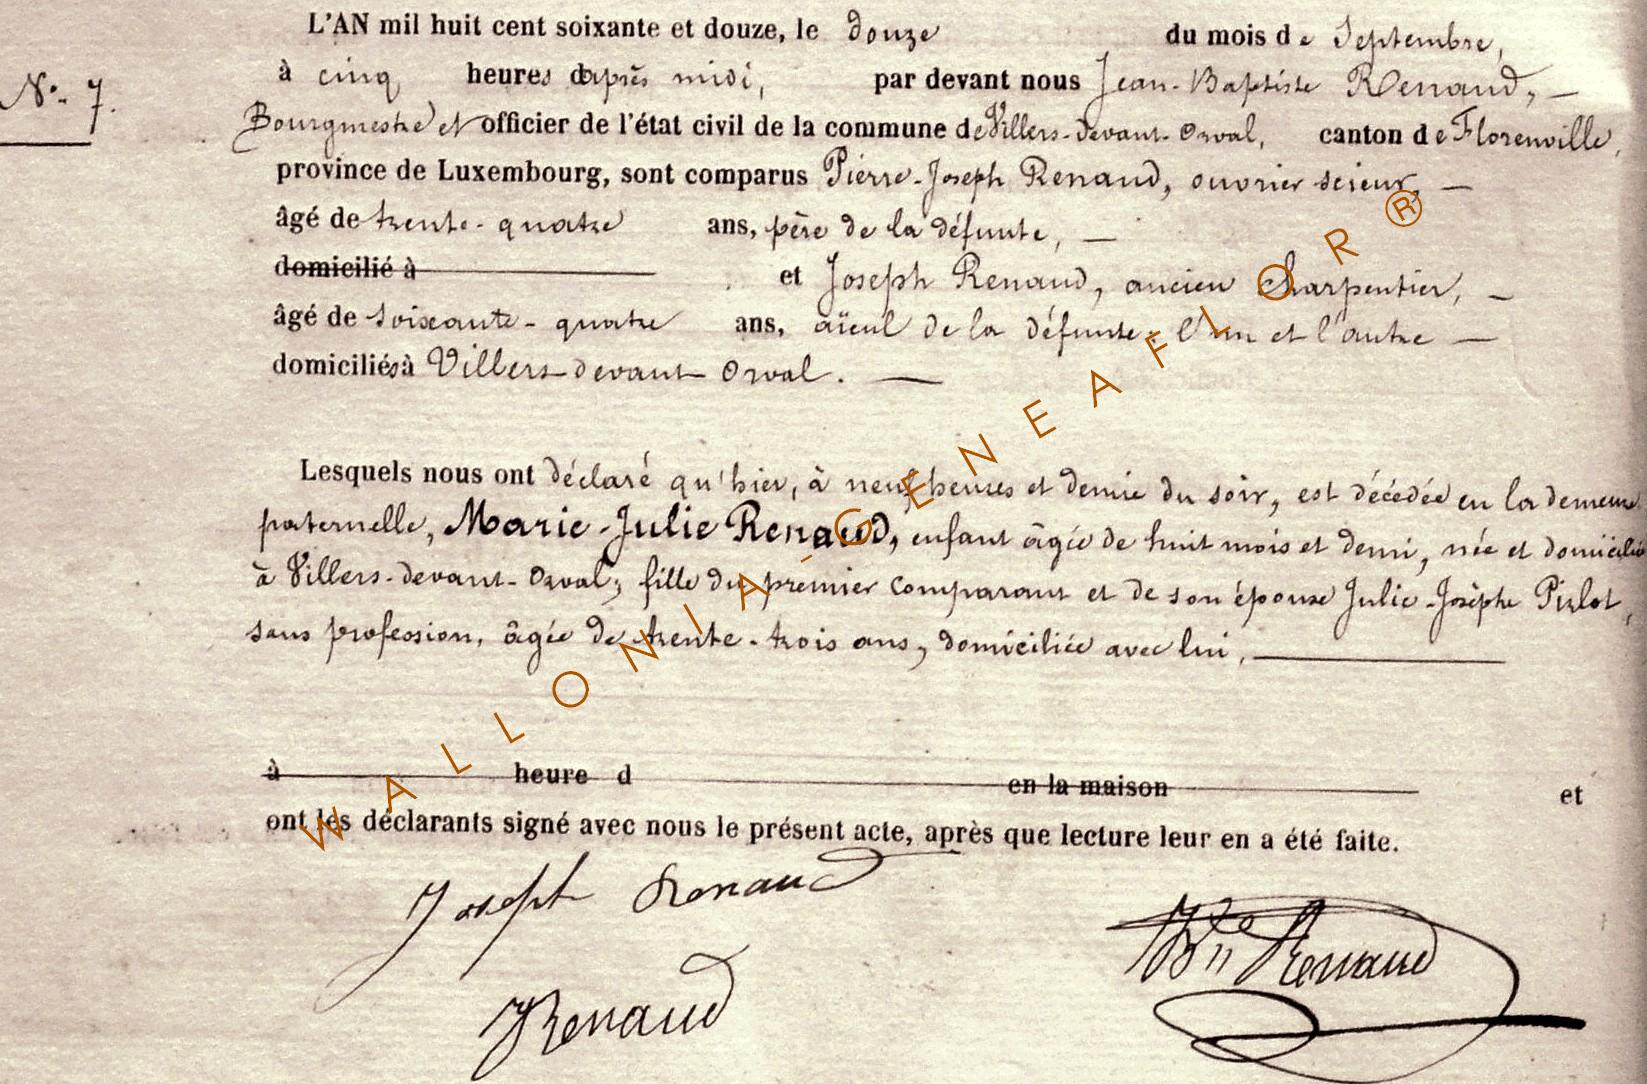 L'AN mil huit cent soixante et douze, le douze du mois de Septembre,
N.o 7.
à cinq heures daprès midi, par devant nous Jean-Baptiste Renaud, —
Bourgmestre et officier de l'état civil de la commune de Villers-devant-Orval, canton de Florenville,
province de Luxembourg, sont comparus Pierre-Joseph Renaud, ouvrier scieur, —
âgé de trente-quatre ans, père de la défunte, —
domicilié à et Joseph Renaud, ancien Charpentier, —
âgé de soixante-quatre ans, aïeul de la défunte. l'un et l'autre —
domiciliés à Villers-devant-Orval. —
Lesquels nous ont déclaré qu'hier, à neuf heures et demie du soir, est décédée en la demeure
paternelle, Marie-Julie Renaud, enfant âgée de huit mois et demi, née et domiciliée
à Villers-devant-Orval, fille du premier comparant et de son épouse Julie-Josèphe Pirlot,
sans profession, âgée de trente-trois ans, domiciliée avec lui, —
à heure d en la maison et
ont les déclarants signé avec nous le présent acte, après que lecture leur en a été faite.
Joseph Renaud
Renaud
Renaud
WALLONIA-GENEAFLOR®